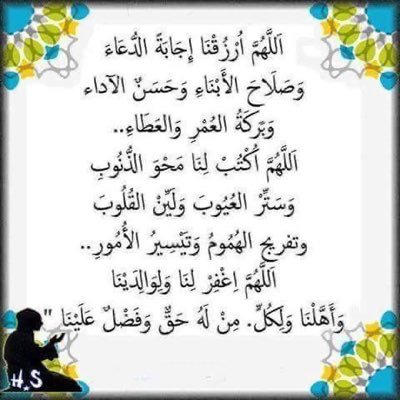 اَللَّهُمَّ اُرْزُقْنَا إِجَابَةً الدُّعَاءَ
وَصَلَاحَ الأَبْنَاءِ وَحَسَنٌ الآداء
وَبَرَكَةُ العُمْرِ وَالعَطَاءِ..
اَللَّهُمَّ اُكْتُبْ لِنَا مَحْوَ الذُّنُوبِ
وَسَتِّرْ العُيُوبَ وَلَيِّنْ القُلُوبَ
وتفريج الهُمُومُ وَتَيْسِيرُ الأُمُورِ..
اَللَّهُمَّ اِغْفِرْ لِنَا وَلِوَالِدَيْنَا
وَأَهَّلْنَا وَلِكُلٍّ. مِنْ لَهُ حَقٌّ وَفَضْلٌ عَلَيْنَا "
H.S